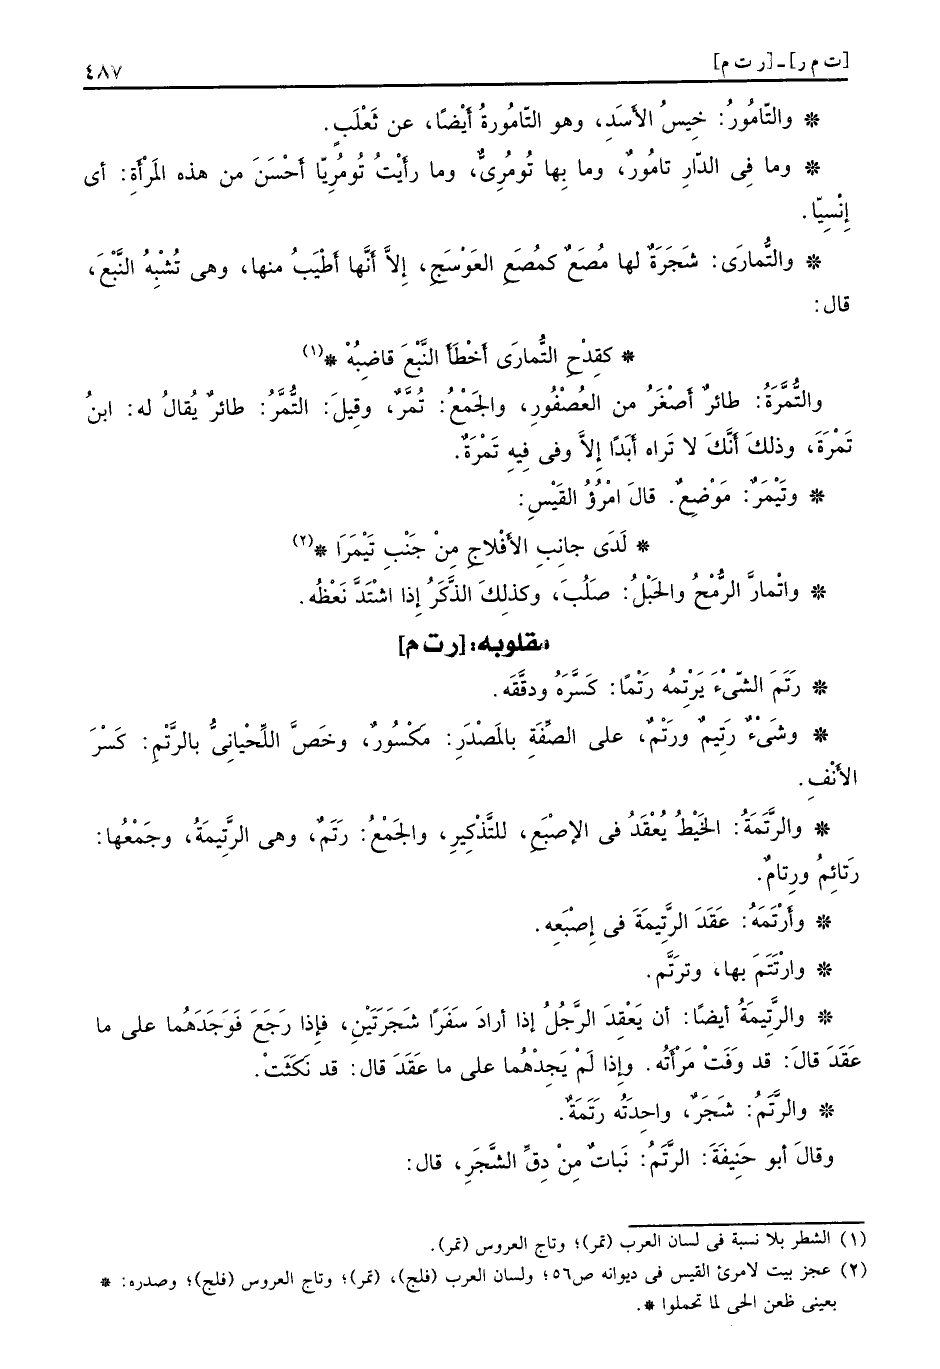 [ت م ر] - [ر ت م] ٤٨٧
* والتّامُورُ: خِيسُ الأسَدِ، وهو التّامُورةُ أيْضًا، عن ثَعْلَبٍ.
* وما فِى الدّارِ تامُورٌ، وما بِها تُومُرِىٌّ، وما رأيْتُ تُومُرِيّا أحْسَنَ من هذه المَرْأةِ: أى
إنْسِيّا.
* والتُّمارَى: شَجَرَةٌ لها مُصَعٌ كمُصَعِ العَوْسَجِ، إلاَّ أنَّها أطْيَبُ منها، وهى تُشْبِهُ النَّبْعَ،
قال:
* كقِدْحِ التُّمارَى أخْطَأَ النَّبْعَ قاضِبُهْ *(١)
والتُّمَّرَةُ: طائرٌ أصْغَرُ من العُصْفُورِ، والجَمْعُ: تُمَّرٌ، وقِيلَ: التُّمَّرُ: طائرٌ يُقالُ له: ابنُ
تَمْرَةَ، وذلكَ أنَّكَ لا تَراه أبَدًا إلاَّ وفى فِيهِ تَمْرَةٌ.
* وتَيْمَرٌ: مَوْضِعٌ. قالَ امْرُؤُ القَيْسِ:
* لَدَى جانِبِ الأفْلاجِ مِنْ جَنْبِ تَيْمَرَا *(٢)
* واتْمارَّ الرُّمْحُ والحَبْلُ: صَلُبَ، وكذلِكَ الذَّكَرُ إذا اشْتَدَّ نَعْظُه.
مقلوبه: [ر ت م]
* رَتَمَ الشّىْءَ يَرْتِمُه رَتْمًا: كَسَّرَهُ ودقَّقَه.
* وشَىْءٌ رَتِيمٌ ورَتْمٌ، على الصِّفَةِ بالمَصْدَرِ: مَكْسُورٌ، وخَصَّ اللِّحْيانِىُّ بالرَّتْمِ: كَسْرَ
الأنْفِ.
* والرَّتَمَةُ: الخَيْطُ يُعْقَدُ فى الإصْبَعِ، للتَّذْكِيرِ، والجَمْعُ: رَتَمٌ، وهى الرَّتِيمَةُ، وجَمْعُها:
رَتائِمُ ورِتامٌ.
* وأَرْتَمَهُ: عَقَدَ الرَّتِيمَةَ فى إصْبَعِه.
* وارْتَتَمَ بها، وترَتَّم.
* والرَّتِيمَةُ أيضًا: أن يَعْقِدَ الرَّجُلُ إذا أرادَ سَفَرًا شَجَرَتَيْنِ، فإذا رَجَعَ فَوَجَدَهُما على ما
عَقَدَ قالَ: قد وفَتْ مَرْأتُه. وإذا لَمْ يَجِدْهُما على ما عَقَدَ قال: قد نَكَثَتْ.
* والرَّتَمُ: شَجَرٌ، واحِدَتُه رَتَمَةٌ.
وقالَ أبو حَنِيفَةَ: الرَّتَمُ: نَباتٌ مِنْ دِقِّ الشَّجَرِ، قال:
(١) الشطر بلا نسبة فى لسان العرب (تمر)؛ وتاج العروس (تمر).
(٢) عجز بيت لامرئ القيس فى ديوانه ص٥٦؛ ولسان العرب (فلج)، (تمر)؛ وتاج العروس (فلج)؛ وصدره: *
بعينى ظعن الحى لما تحملوا *.